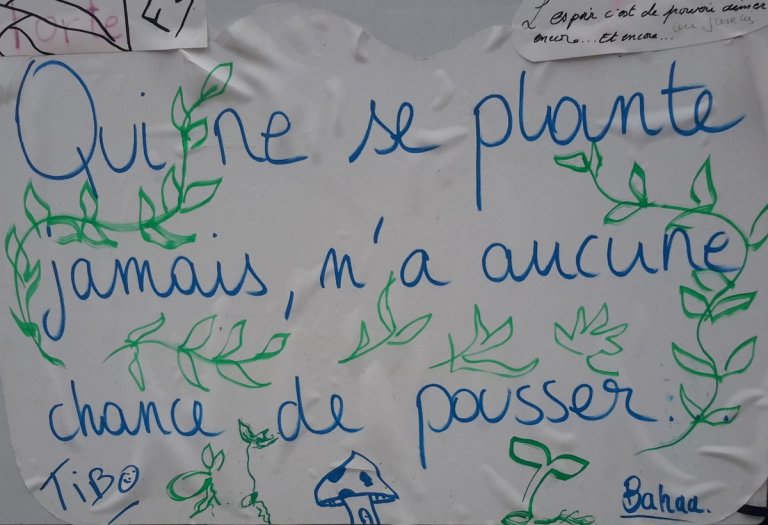 Forte
L'espoir c'est de pouvoir aimer
encore... Et encore...
au jamais
Qui ne se plante
jamais, n'a aucune
chance de pousser.
TiBO
Bahaa.